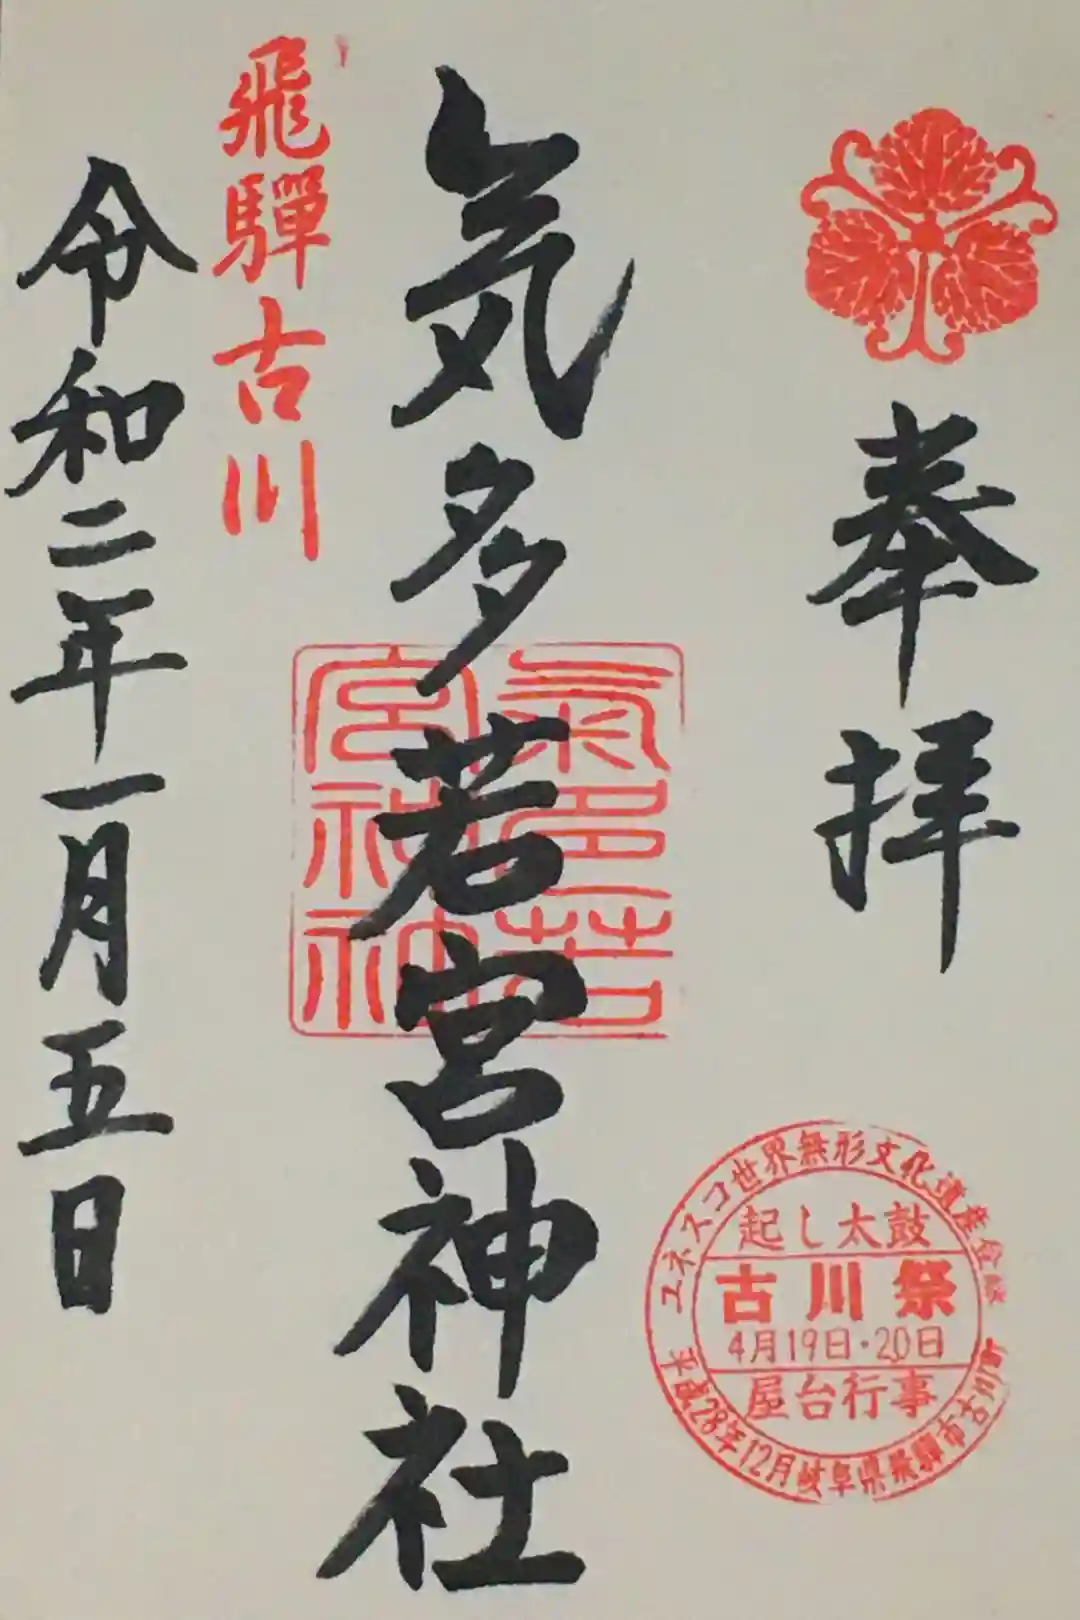 奉拝
ユネスコ世界無形文化遺産登録
起し太鼓
古川祭
4月19日・20日
屋台行事
平成28年12月岐阜県飛騨市古川町
気多若宮神社
氣多若
宮神社
飛騨古川
令和二年一月五日